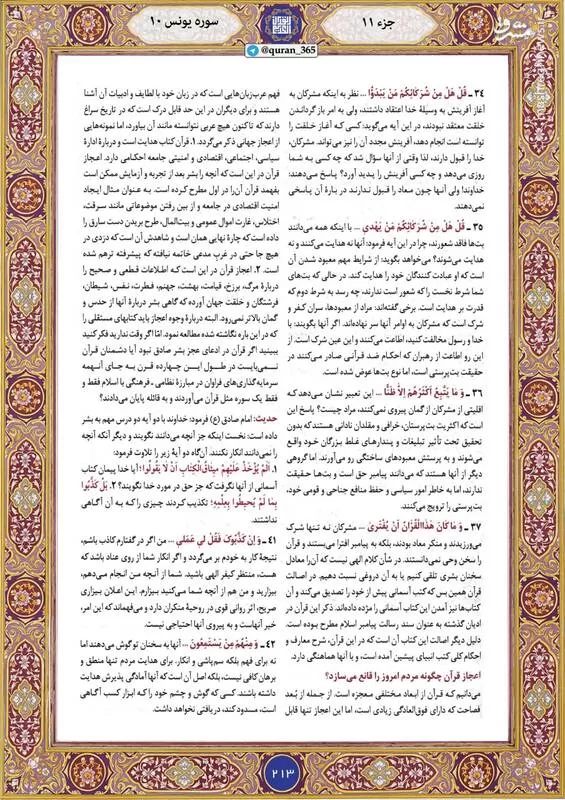 جزء ۱۱
سوره یونس ۱۰
@quran_365
مشرق
۳۴ ـ قُلْ هَلْ مِن شُرَکَائِکُمْ مَنْ یَبْدَؤُا ... نظر به اینکه مشرکان به
آغاز آفرینش به وسیلهٔ خدا اعتقاد داشتند، ولی به امر بازگرداندن
خلقت معتقد نبودند، در این آیه می‌گوید: کسی که آغاز خلقت را
توانسته است انجام دهد، آفرینش مجدد آن را نیز می‌تواند. مشرکان،
خدا را قبول دارند، لذا وقتی از آنها سؤال شد که چه کسی به شما
روزی می‌دهد و چه کسی آفرینش را پدید آورد؟ پاسخ می‌دهند:
خداوند! ولی آنها چون معاد را قبول ندارند در بارهٔ آن پاسخی
نمی‌دهند.
۳۵ ـ قُلْ هَلْ مِن شُرَکَائِکُمْ مَنْ یَهْدِی ... با اینکه همه می‌دانند
بت‌ها فاقد شعورند، چرا در این آیه فرمود: آنها نه هدایت می‌کنند و نه
هدایت می‌شوند؟ می‌خواهد بگوید: از شرایط مهم معبود شدن آن
است که او عبادت کنندگان خود را هدایت کند. در حالی که بت‌های
شما شرط نخست را که شعور است ندارند، چه رسد به شرط دوم که
قدرت بر هدایت است. برخی گفته‌اند: مراد از معبودها، سران کفر و
شرک است که مشرکان به اوامر آنها سر نهاده‌اند. اگر آنها بگویند: با
خدا و رسول مخالفت کنید، اطاعت می‌کنند و این عین شرک است. از
این رو اطاعت از رهبران که احکام ضد قرآنی صادر می‌کنند در
حقیقت بت‌پرستی است، اما نوع بت‌ها عوض شده است.
۳۶ ـ وَ مَا یَتَّبِعُ أَکْثَرُهُمْ إِلاَّ ظَنًّا ... این تعبیر نشان می‌دهد که
اقلیتی از مشرکان از گمان پیروی نمی‌کنند، مراد چیست؟ پاسخ این
است که اکثریت بت‌پرستان، خرافی و مقلدان نادانی هستند که بدون
تحقیق تحت تأثیر تبلیغات و پندارهای غلط بزرگان خود واقع
می‌شوند و به پرستش معبودهای ساختگی رو می‌آورند. اما گروهی
دیگر از آنها هستند که می‌دانند پیامبر حق است و بت‌ها حقیقت
ندارند، اما به خاطر امور سیاسی و حفظ منافع جناحی و قومی خود،
بت‌پرستی را ترویج می‌کنند.
۳۷ ـ وَ مَا کَانَ هَذَا الْقُرْآنُ أَنْ یُفْتَرَى ـ مشرکان نه تنها شرک
می‌ورزیدند و منکر معاد بودند، بلکه به پیامبر افترا می‌بستند و قرآن
را سخن وحی نمی‌دانستند. در شأن کلام الهی نیست که آن‌را معادل
سخنان بشری تلقی کنیم یا به آن دروغی نسبت دهیم. در اصالت
قرآن همین بس که کتب آسمانی پیش از خود را تصدیق می‌کند و آن
کتاب‌ها نیز آمدن این کتاب آسمانی را مژده داده‌اند. ذکر این قرآن در
ادیان گذشته به عنوان سند رسالت پیامبر اسلام مطرح بوده است.
دلیل دیگر اصالت این کتاب آن است که در این قرآن، شرح معارف و
احکام کلی کتب انبیای پیشین آمده است، و با آنها هماهنگی دارد.
اعجاز قرآن چگونه مردم امروز را قانع می‌سازد؟
می‌دانیم که قرآن از ابعاد مختلفی معجزه است. از جمله از بُعد
فصاحت که دارای فوق‌العادگی زیادی است، اما این اعجاز تنها قابل
فهم عرب‌زبان‌هایی است که در زبان خود با لطایف و ادبیات آن آشنا
هستند و برای دیگران در این حد قابل درک است که در تاریخ سراغ
دارند که تاکنون هیچ عربی نتوانسته مانند آن بیاورد، اما نمونه‌هایی
از اعجاز جهانی ذکر می‌گردد. ۱. قرآن کتاب هدایت است و دربارهٔ ادارهٔ
سیاسی، اجتماعی، اقتصادی و امنیتی جامعه احکامی دارد. اعجاز
قرآن در این است که آنچه را بشر بعد از تجربه و آزمایش ممکن است
بفهمد قرآن آن‌را در اول مطرح کرده است. به عنوان مثال ایجاد
امنیت اقتصادی در جامعه و از بین رفتن موضوعاتی مانند سرقت،
اختلاس، غارت اموال عمومی و بیت‌المال، طرح بریدن دست سارق را
داده است که چارهٔ نهایی همان است و شاهدش آن است که دزدی در
هیچ جا حتی در غربِ مدعی خاتمه نیافته که پیشرفته ترهم شده
است. ۲. اعجاز قرآن در این است کـه اطلاعات قطعی و صحیح را
دربارهٔ مرگ، برزخ، قیامت، بهشت، جهنم، فطرت، نفس، شیطان،
فرشتگان و خلقت جهان آورده که گاهی بشر دربارهٔ آنها از حدس و
گمان بالاتر نمی‌رود. البته دربارهٔ وجوه اعجاز باید کتابهای مستقلی را
که در این باره نگاشته شده مطالعه نمود. امّا اگر وقت ندارید فکر کنید
ببینید اگر قرآن در ادعای عجز بشر صادق نبود آیا دشمنان قرآن
نمـی‌بایست در طول ایـن چهـارده قـرن بـه جای آنهمه
سرمایه‌گذاری‌های فراوان در مبارزهٔ نظامی ـ فرهنگی با اسلام فقط و
فقط یک سوره مثل قرآن می‌آوردند و به قائله پایان می‌دادند؟
حدیث: امام صادق (ع) فرمود: خداوند با دو آیه دو درس مهم به بشر
داده است: نخست اینکه جز آنچه می‌دانند نگویند و دیگر آنکه آنچه
را نمی‌دانند انکار نکنند. آن‌گاه دو آیهٔ زیر را تلاوت فرمود:
۱. أَلَمْ یُؤْخَذْ عَلَیْهِمْ مِیثَاقُ الْکِتَابِ أَنْ لَا یَقُولُوا؛ آیا خدا پیمان کتاب
آسمانی از آنها نگرفت که جز حق در مورد خدا نگویند؟ ۲. بَلْ کَذَّبُوا
بِمَا لَمْ یُحِیطُوا بِعِلْمِهِ؛ تکذیب کردند چیزی را که به آن آگاهی
نداشتند.
۴۱ ـ وَ إِن کَذَّبُوکَ فَقُلْ لِی عَمَلِی ... من اگر در گفتارم کاذب باشم،
نتیجهٔ کار به خودم بر می‌گردد و اگر انکار شما از روی عناد باشد که
هست، منتظر کیفر الهی باشید. شما از آنچه من انجام می‌دهم،
بیزارید و من هم از آنچه شما می‌کنید بیزارم. این اعلان بیزاری
صریح، اثر روانی قوی در روحیهٔ منکران دارد و می‌فهماند که این امر،
خیر آنهاست و به پیروی آنها احتیاجی نیست.
۴۲ ـ وَ مِنْهُمْ مَنْ یَسْتَمِعُونَ ... آنها به سخنان تو گوش می‌دهند اما
نه برای فهم بلکه سم‌پاشی و انکار. برای هدایت مردم تنها منطق و
برهان کافی نیست، بلکه اصل آن است که آنها آمادگی پذیرش هدایت
داشته باشند. کسی که گوش و چشم خود را که ابزار کسب آگاهی
است، مسدود کند، دریافتی نخواهد داشت.
۲۱۳